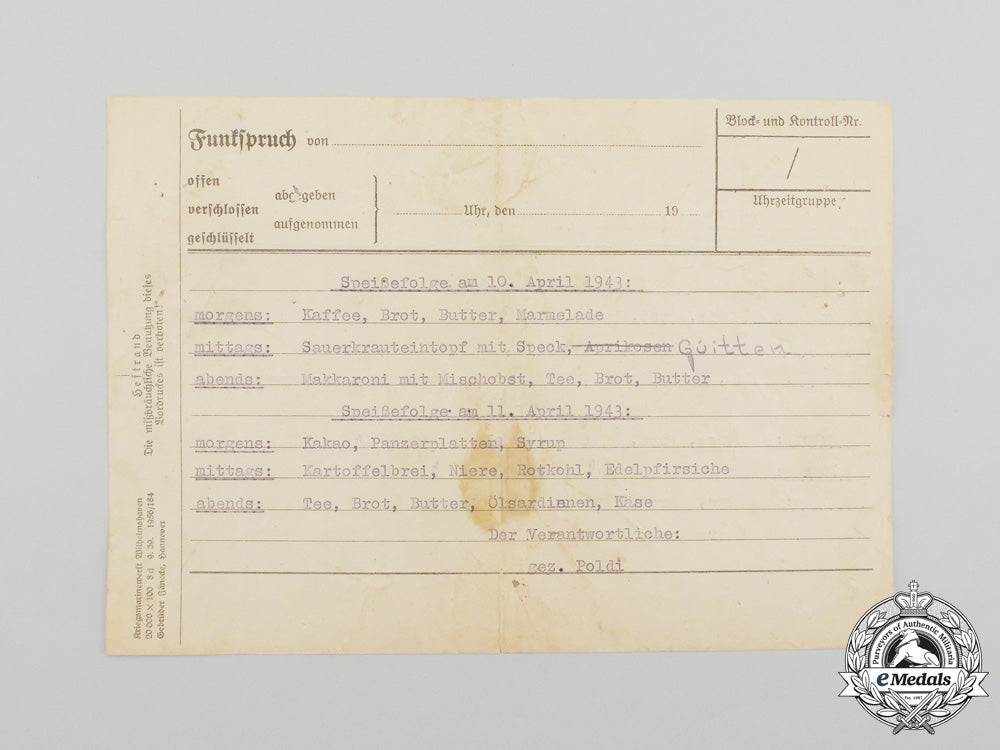 Funkspruch von
offen
verschlossen
geschlüsselt
abgegeben
aufgenommen
Uhr, den 19
Block- und Kontroll-Nr.
/
Uhrzeitgruppe
Speißefolge am 10. April 1943:
morgens: Kaffee, Brot, Butter, Marmelade
mittags: Sauerkrauteintopf mit Speck, Aprikosen Quitten
abends: Makkaroni mit Mischobst, Tee, Brot, Butter
Speißefolge am 11. April 1943:
morgens: Kakao, Panzerplatten, Syrup
mittags: Kartoffelbrei, Niere, Rotkohl, Edelpfirsiche
abends: Tee, Brot, Butter, Ölsardinnen, Käse
Der Verantwortliche:
gez. Poldi
Heftrand
Die mißbräuchliche Benutzung dieses
Vordruckes ist verboten!
Kriegsmarinewerft Wilhelmshaven
20 000 × 100 Bd 9. 39. 1956/184
Gebrüder Jänecke, Hannover
Purveyors of Authentic Militaria
eMedals
Est. 1987